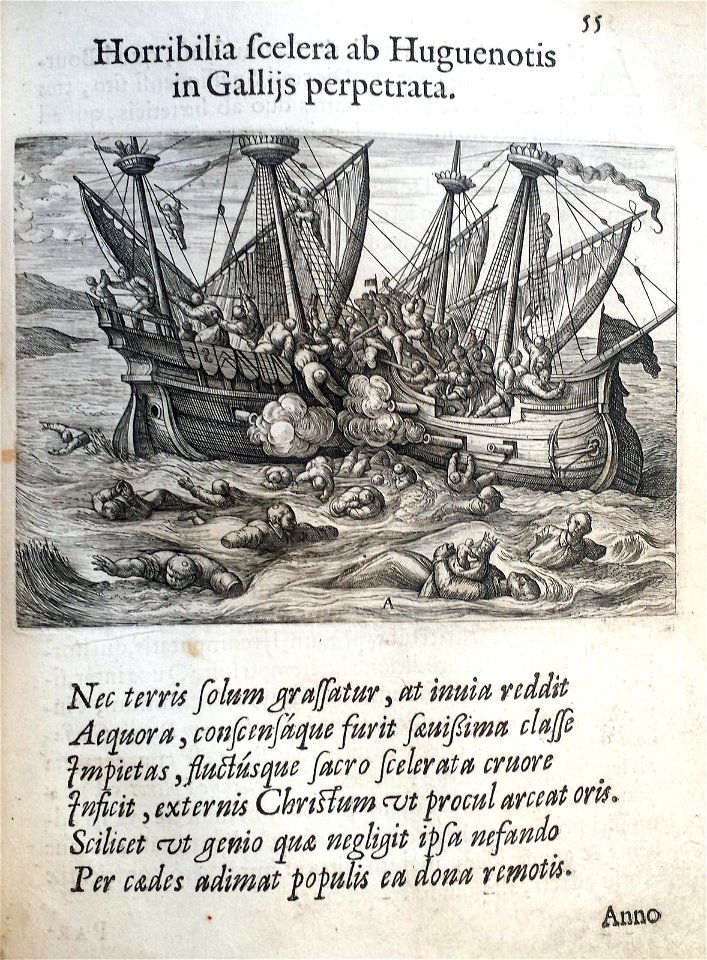 55
Horribilia ſcelera ab Huguenotis
in Gallijs perpetrata.
A
Nec terris ſolum graſſatur, at inuia reddit
Aequora, conſcensáque furit ſæuiſsima claſſe
Impietas, fluctúsque ſacro ſcelerata cruore
Inficit, externis Chriſtum vt procul arceat oris.
Scilicet vt genio quæ negligit ipſa nefando
Per cædes adimat populis ea dona remotis.
Anno